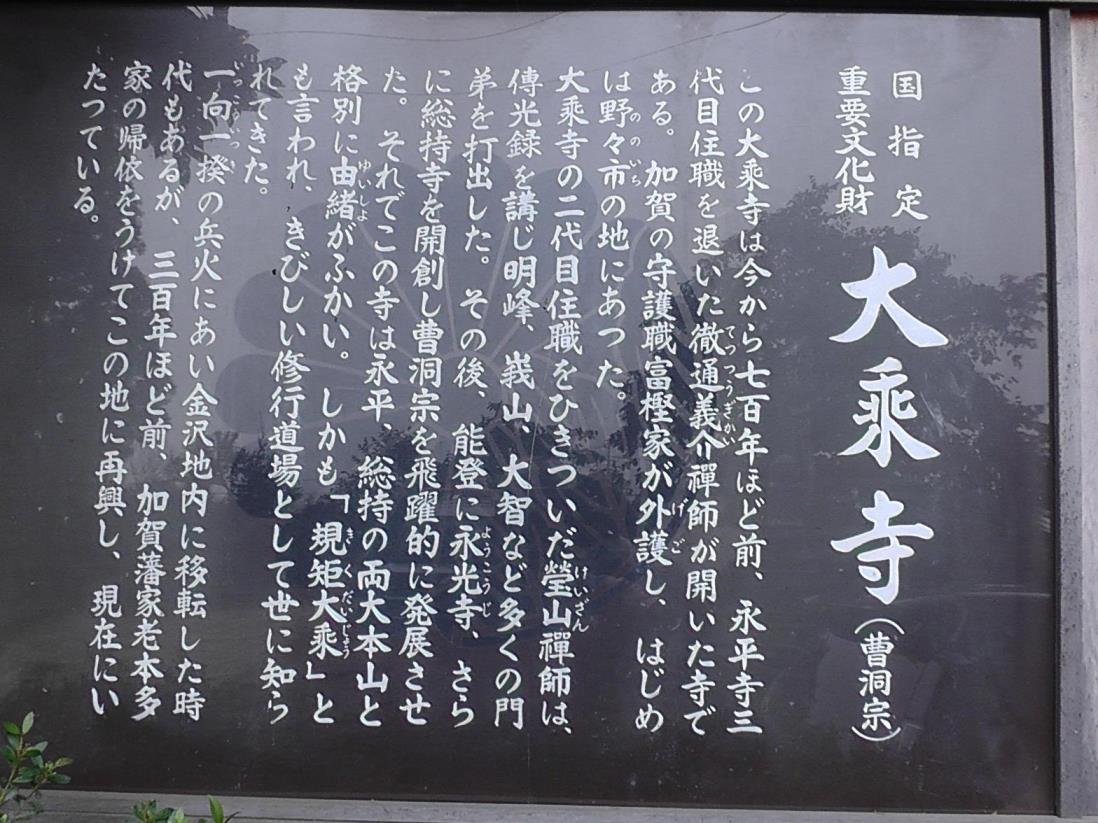 国指定
重要文化財
大乘寺（曹洞宗）
この大乘寺は今から七百年ほど前、永平寺三
代目住職を退いた徹通義介禪師が開いた寺で
てつつうぎかい
ある。加賀の守護職富樫家が外護し、はじめ
げご
は野々市の地にあつた。
ののいち
大乘寺の二代目住職をひきついだ瑩山禪師は、
けいざん
傳光録を講じ明峰、峩山、大智など多くの門
弟を打出した。その後、能登に永光寺、さら
ようこうじ
に総持寺を開創し曹洞宗を飛躍的に発展させ
た。それでこの寺は永平、総持の両大本山と
格別に由緒がふかい。しかも「規矩大乘」と
ゆいしよ
きくだいじょう
も言われ、きびしい修行道場として世に知ら
れてきた。
一向一揆の兵火にあい金沢地内に移転した時
代もあるが、三百年ほど前、加賀藩家老本多
家の帰依をうけてこの地に再興し、現在にい
たつている。